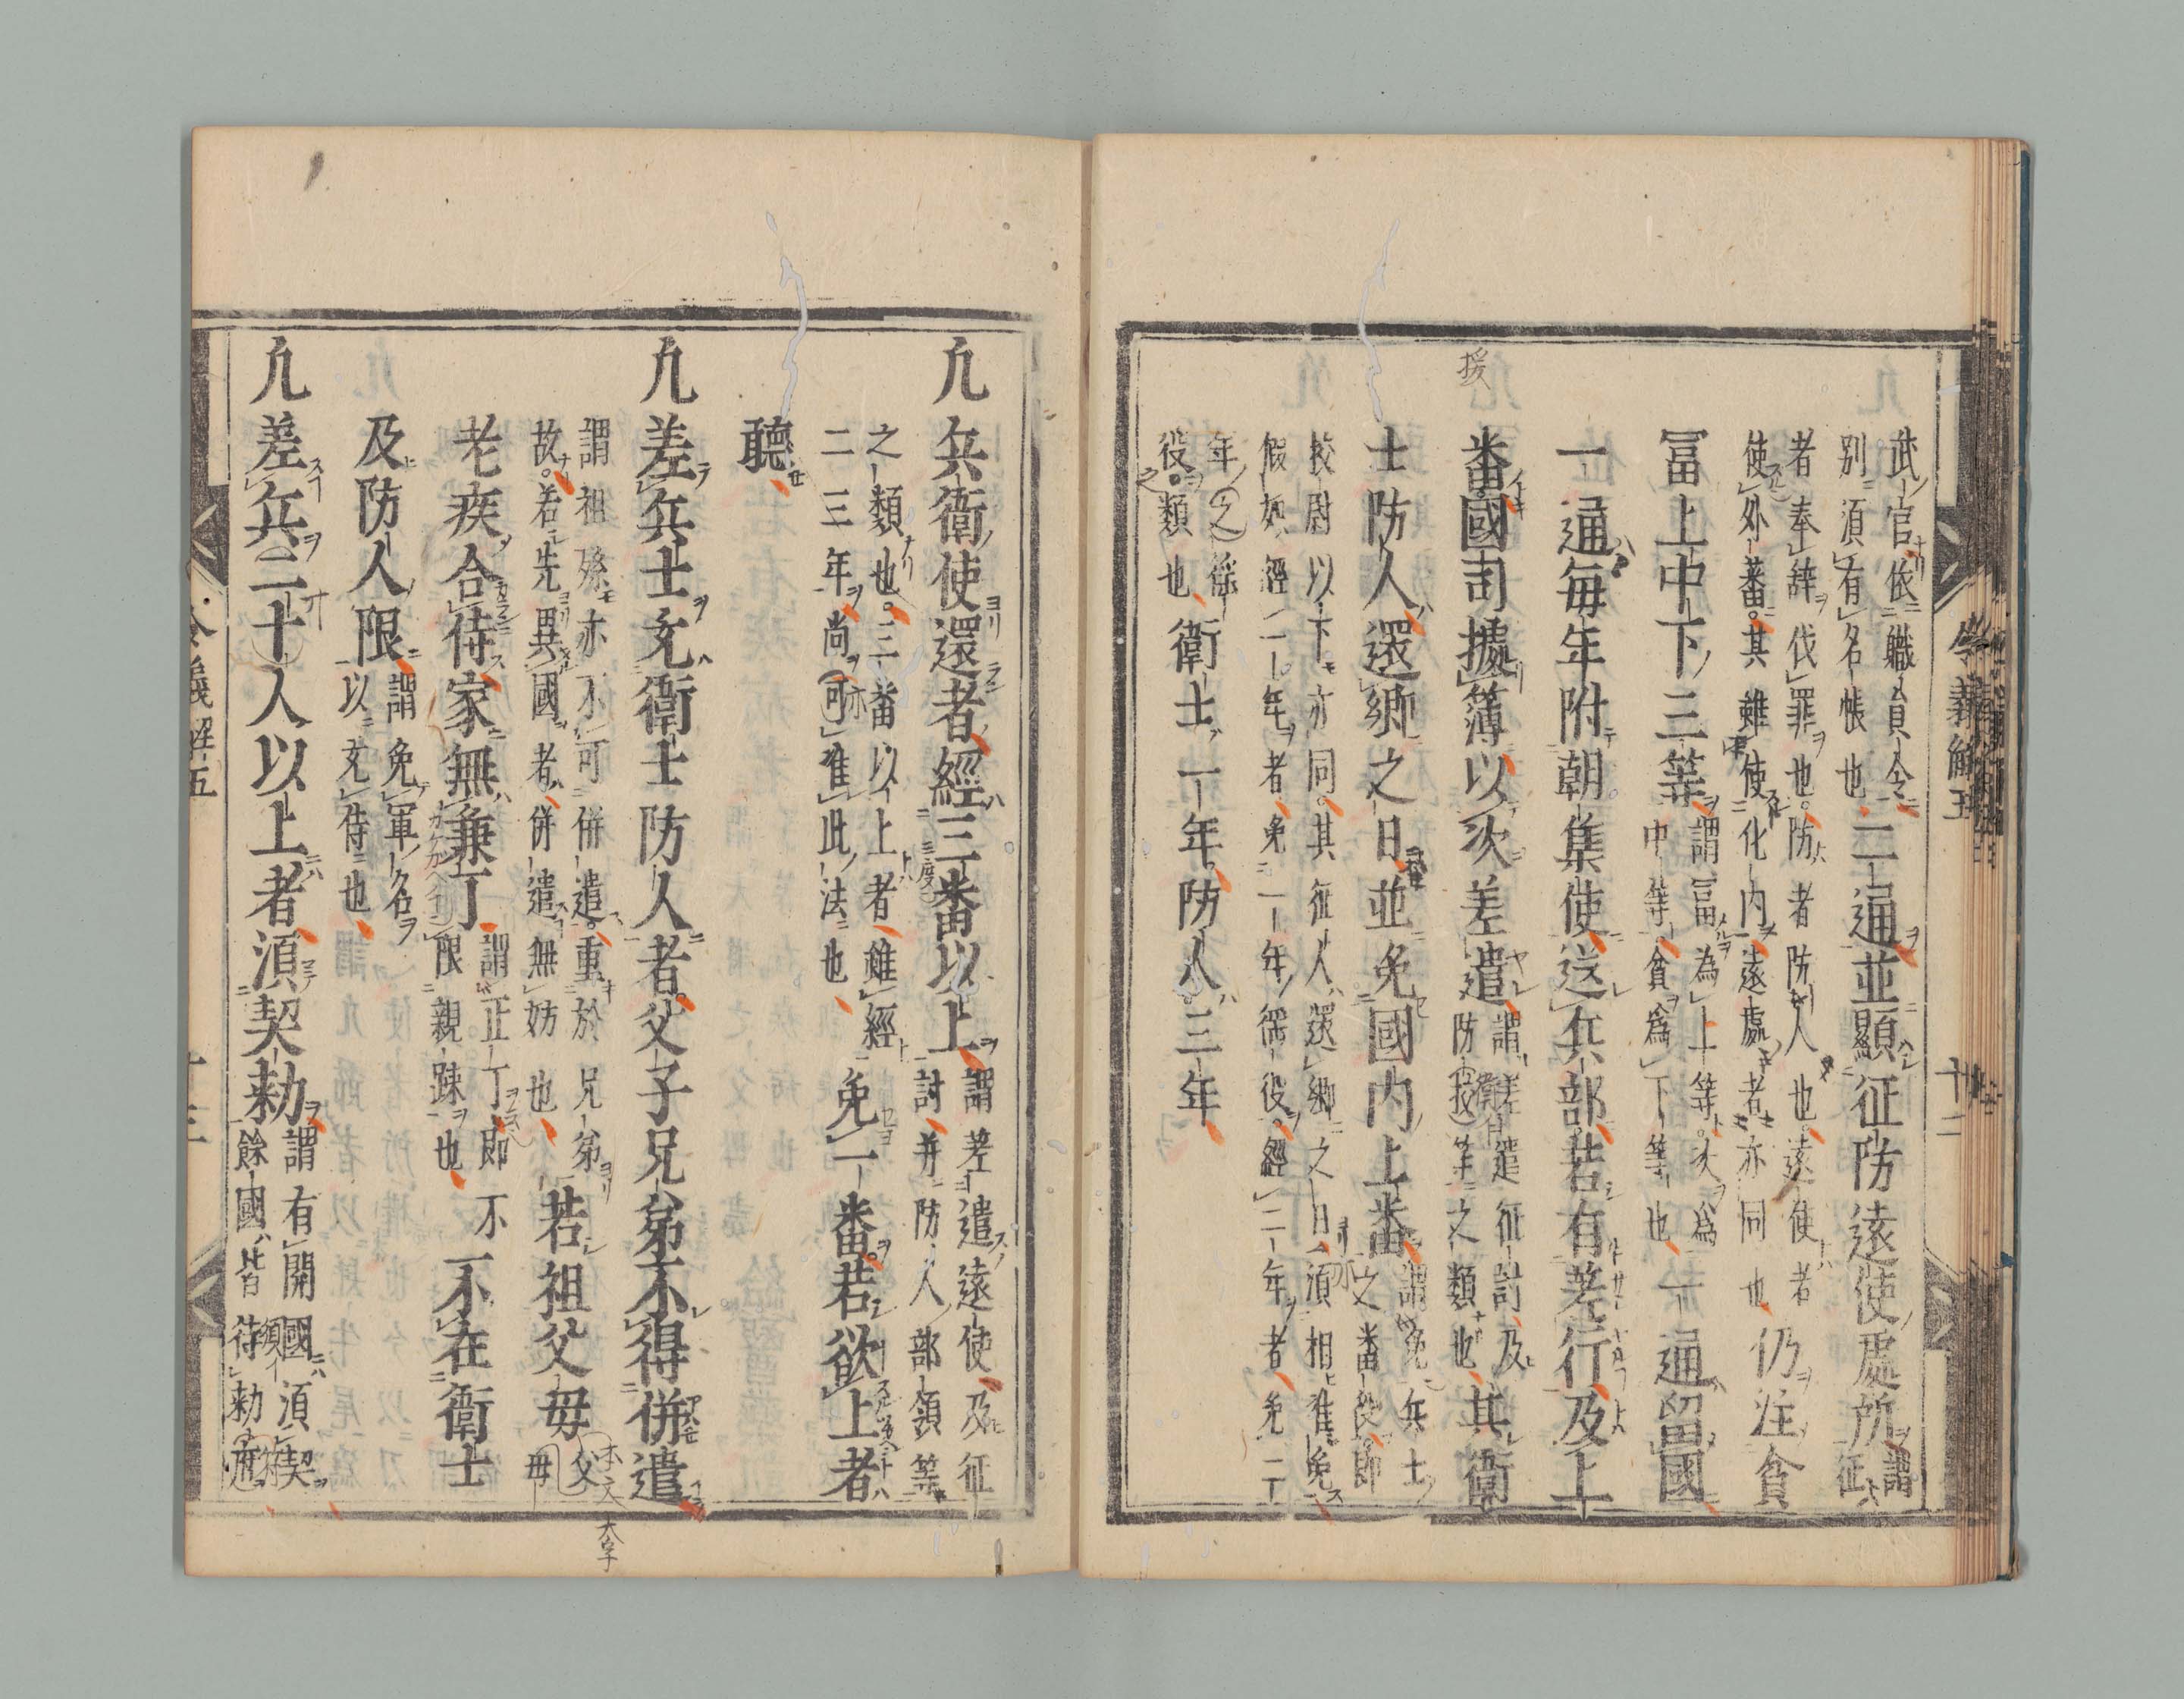 武官依職員令
別須有名帳也二通並顯征防遠使處所謂
征
者奉辭伐罪也防者防人也遠使者
使外蕃其雖使化内遠處者亦同也仍注貧
冨上中下三等謂冨為上等次為
中等貧為下等也一通留國
一通毎年附朝集使送兵部若有差行及上
番國司據簿以次差遣謂差遣征討及
防援等之類也其衛
士防人還郷之日並免國内上番謂免兵士
之番役即
校尉以下亦同其征人還郷之日須相准免
假如經一年者免一年徭役經二年者免二
年徭
役之類也衛士一年防人三年
令義解五
十二
凢兵衛使還者經三番以上謂差遣遠使及征
討并防人部領等
之類也三番以上者雖經
二三年尚可准此法也免一番若欲上者
聽
凢差兵士充衛士防人者父子兄弟不得併遣
謂祖孫亦不可併遣重於兄弟
故若先異國者併遣無妨也若祖父母父
母
老疾合侍家無兼丁謂正丁即不
限親踈也不在衛士
及防人限謂免軍名
以充侍也
凢差兵二十人以上者須契勅謂有關國須契
餘國皆待勅
令義解五